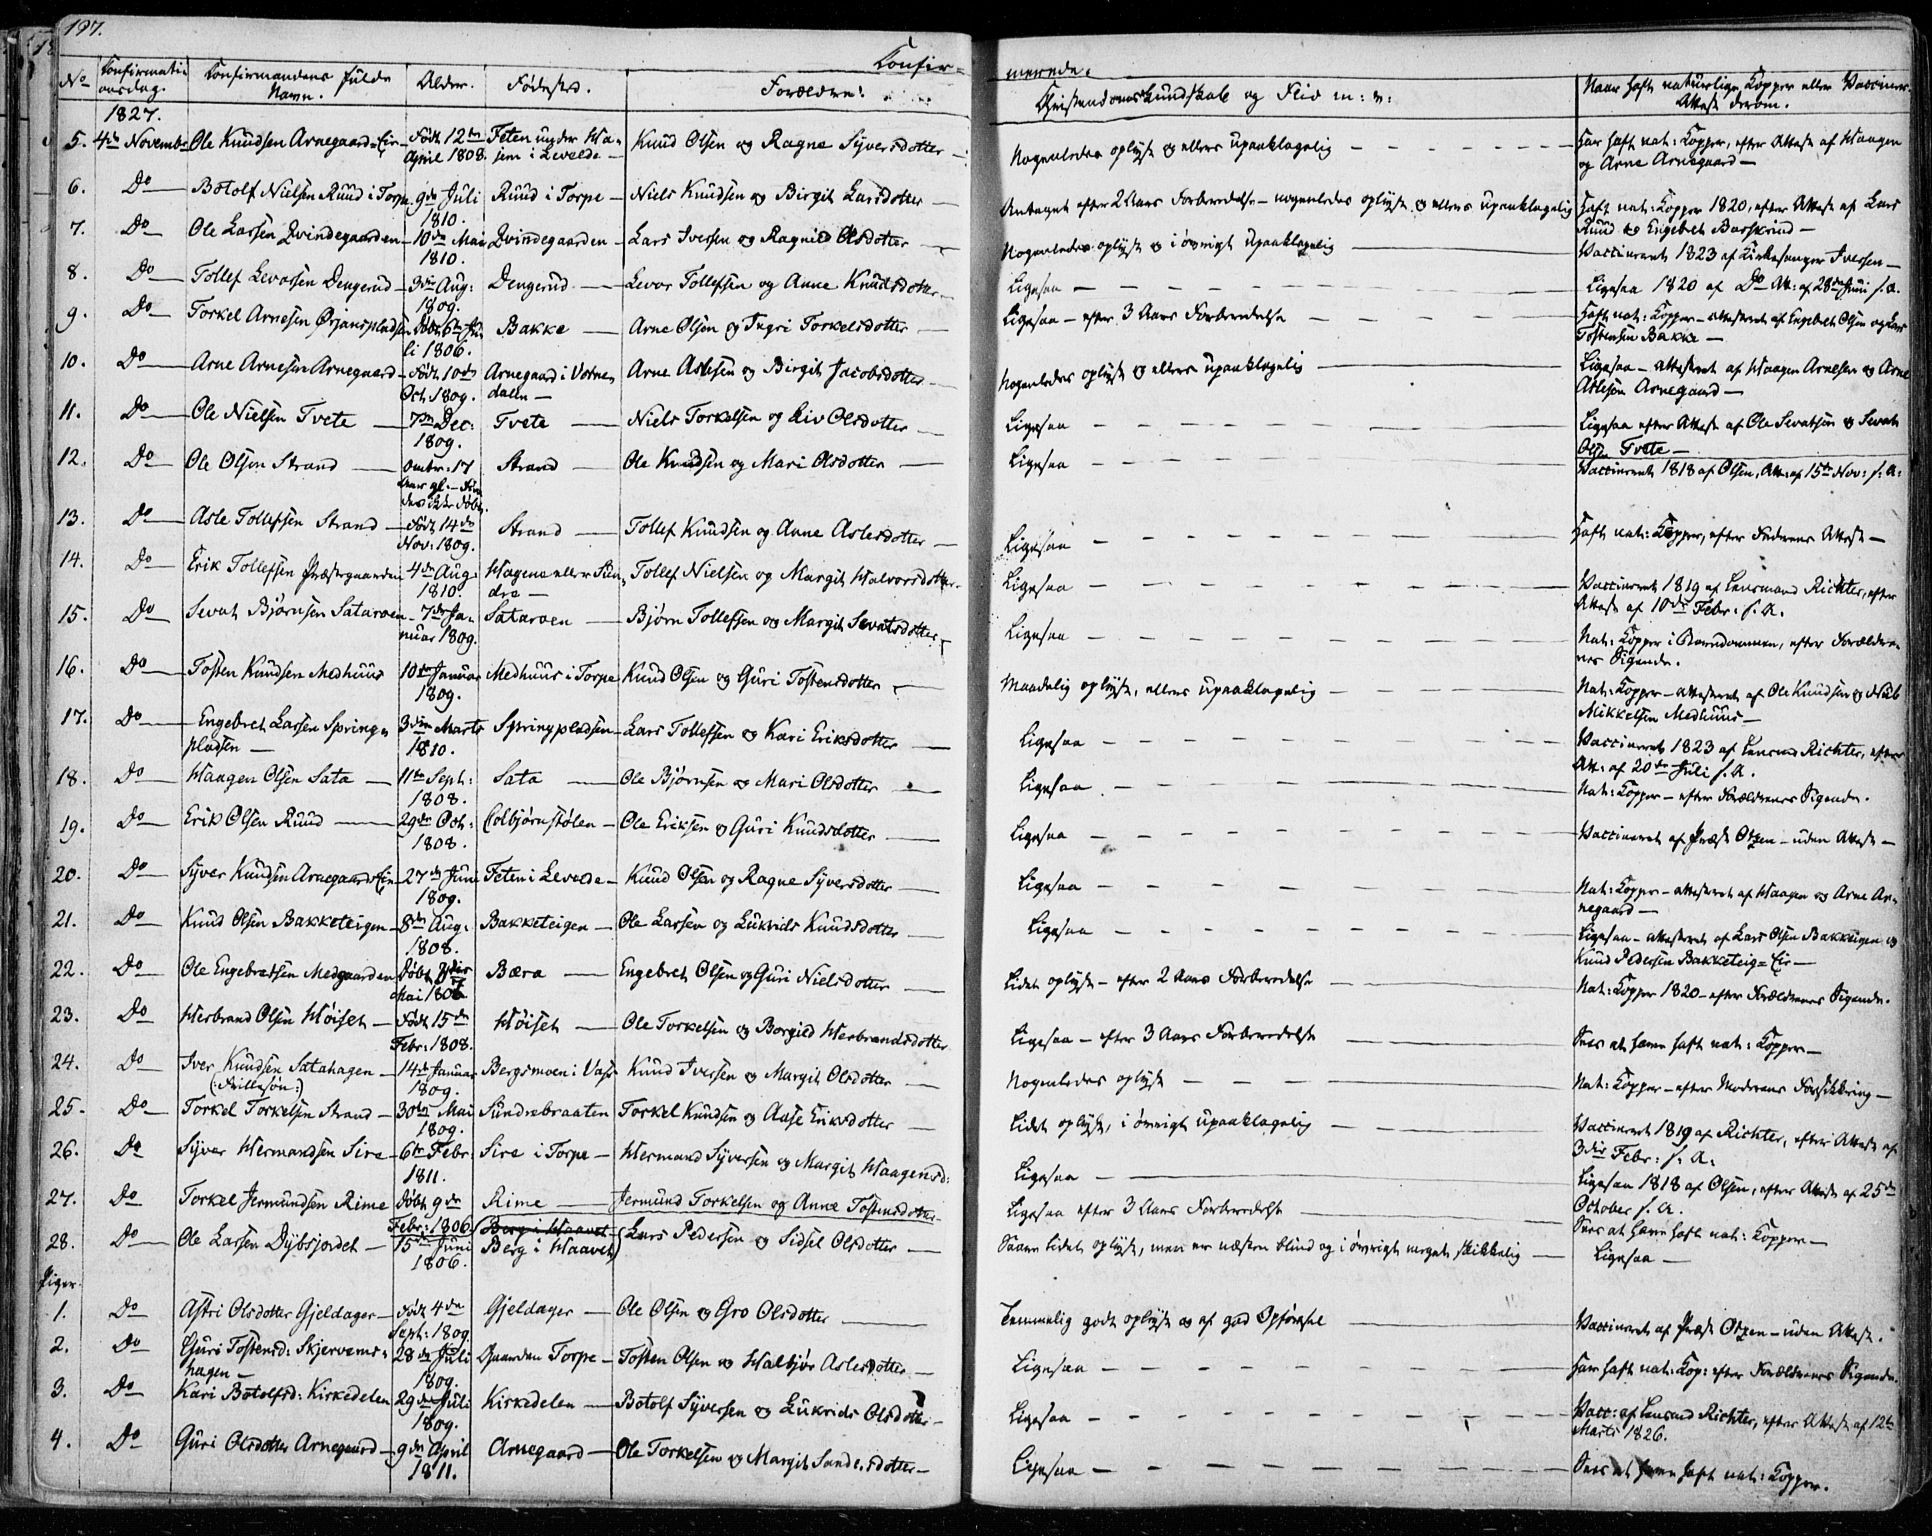 197.
Konfirmerede.
No Confirmations dag. Konfirmandens fulde Navn. Alder. Fødested. Forældre. Christendoms Kundskab og Flid m: v: Naar haft naturlige Kopper eller Vaccineret Attest derom.
1827.
5. 4de Novembr Ole Knudsen Arnegaards Eie Født 12te April 1808. Feten under Haa- sem i Levelde Knud Olsen og Ragne Syversdotter Nogenledes oplyst og ellers upaaklagelig Har haft nat: Kopper, efter Attest af Haagen og Arne Arnegaard
6. Do Botolf Nielsen Ruud i Torpe 9de Juli 1810. Ruud i Torpe Niels Knudsen og Birgit Larsdotter Antaget efter 2 Aars Forberedelse - nogenledes oplyst og ellers upaaklagelig Haft nat: Kopper 1820, efter Attest af Lars Ruud og Engebret
7. Do Ole Larsen Qvindegaarden 10de Mai 1810. Qvindegaarden Lars Iversen og Ragnild Olsdotter Nogenledes oplyst og i øvrigt upaaklagelig Vaccineret 1823 af Kirkesanger Iversen
8. Do Tollef Levorsen Dengerud 3die Aug: 1809. Dengerud Levor Tollefsen og Anne Knudsdotter Ligesaa Ligesaa 1820 af Do Att: af 28de Juni s. A.
9. Do Torkel Arnesen Ørjanspladsen Døbt 6te Juli 1806. Bakke Arne Olsen og Ingri Torkelsdotter Ligesaa - efter 3 Aars Forberedelse Haft nat: Kopper - attesteret af Engebret Olsen og Lars Tostensen Bakke
10. Do Arne Arnesen Arnegaard Født 10de Oct: 1809. Arnegaard i Votne- dalen Arne Aslesen og Birgit Jacobsdotter Nogenledes oplyst og ellers upaaklagelig Ligesaa - attesteret af Haagen Arnesen og Arne Aslesen Arnegaard
11. Do Ole Nielsen Tvete 7de Dec: 1809. Tvete Niels Torkelsen og Liv Olsdotter Ligesaa Ligesaa efter Attest af Ole Sevatsen og Sevat Olsen Tvete
12. Do Ole Olsen Strand omtr: 17 Aar gl: Strand Ole Knudsen og Mari Olsdotter Ligesaa Vaccineret 1818 af Olsen, Att: af 15de Nov: s. A:
13. Do Asle Tollefsen Strand Født 14de Nov: 1809. Strand Tollef Knudsen og Anne Aslesdotter Ligesaa Haft nat: Kopper, efter Faderens Attest
14. Do Erik Tollefsen Præstegaarden 4de Aug: 1810. Hagene eller Sun- dre Tollef Nielsen og Margit Halvorsdotter Ligesaa Vaccineret 1819 af Lensmand Richter, efter Attest af 10de Febr: s. A.
15. Do Sevat Bjørnsen Sataroen 7de Ja- nuar 1809. Sataroen Bjørn Tollefsen og Margit Sevatsdotter Ligesaa Nat: Kopper i Barndommen, efter Forældre- nes Sigende.
16. Do Tosten Knudsen Medhuus 10de Januar 1809. Medhuus i Torpe Knud Olsen og Guri Tostensdotter Maadelig oplyst, ellers upaaklagelig Nat: Kopper - attesteret af Ole Knudsen og Mikkelsen Medhuus
17. Do Engebret Larsen Spring- pladsen 3die Marts 1810. Springpladsen Lars Tollefsen og Kari Eriksdotter Ligesaa Vaccineret 1823 af Lensmd Richter, efter Att: af 20de Juli s. A.
18. Do Haagen Olsen Sata 11te Sept: 1808. Sata Ole Bjørnsen og Mari Olsdotter Ligesaa Nat: Kopper - efter Forældrenes Sigende.
19. Do Erik Olsen Ruud 29de Oct: 1808. Colbjørnstølen Ole Eriksen og Guri Knudsdotter Ligesaa Vaccineret af Præst Otzen - uden Attest
20. Do Syver Knudsen Arnegaards Eie 27de Juni 1809. Feten i Levelde Knud Olsen og Ragne Syversdotter Ligesaa Nat: Kopper - attesteret af Haagen og Arne Ar- negaard
21. Do Knud Olsen Bakketeigen 8de Aug: 1808. Bakketeigen Ole Larsen og Lukrids Knudsdotter Ligesaa Ligesaa - attesteret af Lars Olsen Bakketeigen og Knud Pedersen Bakketeig= Eie
22. Do Ole Engebretsen Medgaarden Døbt Mai Bæra Engebret Olsen og Guri Nielsdotter Lidet oplyst - efter 2 Aars Forberedelse Nat: Kopper 1820 - efter Forældrenes Sigende.
23. Do Herbrand Olsen Høiset Født 15de Febr: 1808. Høiset Ole Torkelsen og Borgild Herbrandsdotter Ligesaa - efter 3 Aars Forberedelse Sees at have haft nat: Kopper
24. Do Iver Knudsen Satahagen 14de Januar 1809. Bergsmoen i Vats Knud Iversen og Margit Olsdotter Nogenledes oplyst Nat: Kopper - efter Moderens Forsikkring
25. Do Torkel Torkelsen Strand 30te Mai 1809. Sundrebraaten Torkel Knudsen og Aase Eriksdotter Lidet oplyst, i øvrigt upaaklagelig Vaccineret 1819 af Richter, efter Attest af 3die Febr: s. A:
26. Do Syver Hermandsen Sire 6te Febr 1811. Sire i Torpe Hermand Syversen og Margit Haagensd: Ligesaa Ligesaa 1818 af Olsen, efter Attest af 25de October s. A.
27. Do Torkel Jermundsen Rime Døbt 9de Febr: 1806 Rime Jermund Torkelsen og Anne Tostensdotter Ligesaa efter 3 Aars Forberedelse Sees at have haft nat: Kopper
28. Do Ole Larsen Dybsjordet 15de Juni 1806. Berg i Haavet Berg i Haavet) Lars Pedersen og Sidsel Olsdotter Saare lidet oplyst, men er næsten blind og i øvrigt meget skikkelig Ligesaa
Piger.
1. Do Astri Olsdotter Gjeldager Født 4de Sept: 1809 Gjeldager Ole Olsen og Gro Olsdotter Temmelig godt oplyst og af god Opførsel Vaccineret af Præst Otzen - uden Attest.
2. Do Guri Tostensd: Skjervems- hagen 28de Juli 1809. Gaarden Torpe Tosten Olsen og Halbjør Aslesdotter Ligesaa Har haft nat: Kop: efter Forældrenes Sigende.
3. Do Kari Botolfsd: Kirkedelen 29de Juli 1809. Kirkedelen Botolf Syversen og Lukrids Olsdotter Ligesaa Vacc: af Lensmd Richter, efter Attest af 12te Marts 1826.
4. Do Guri Olsdotter Arnegaard 9de April 1811. Arnegaard Ole Torkelsen og Margit Ligesaa Sees at have haft nat: Kopper.